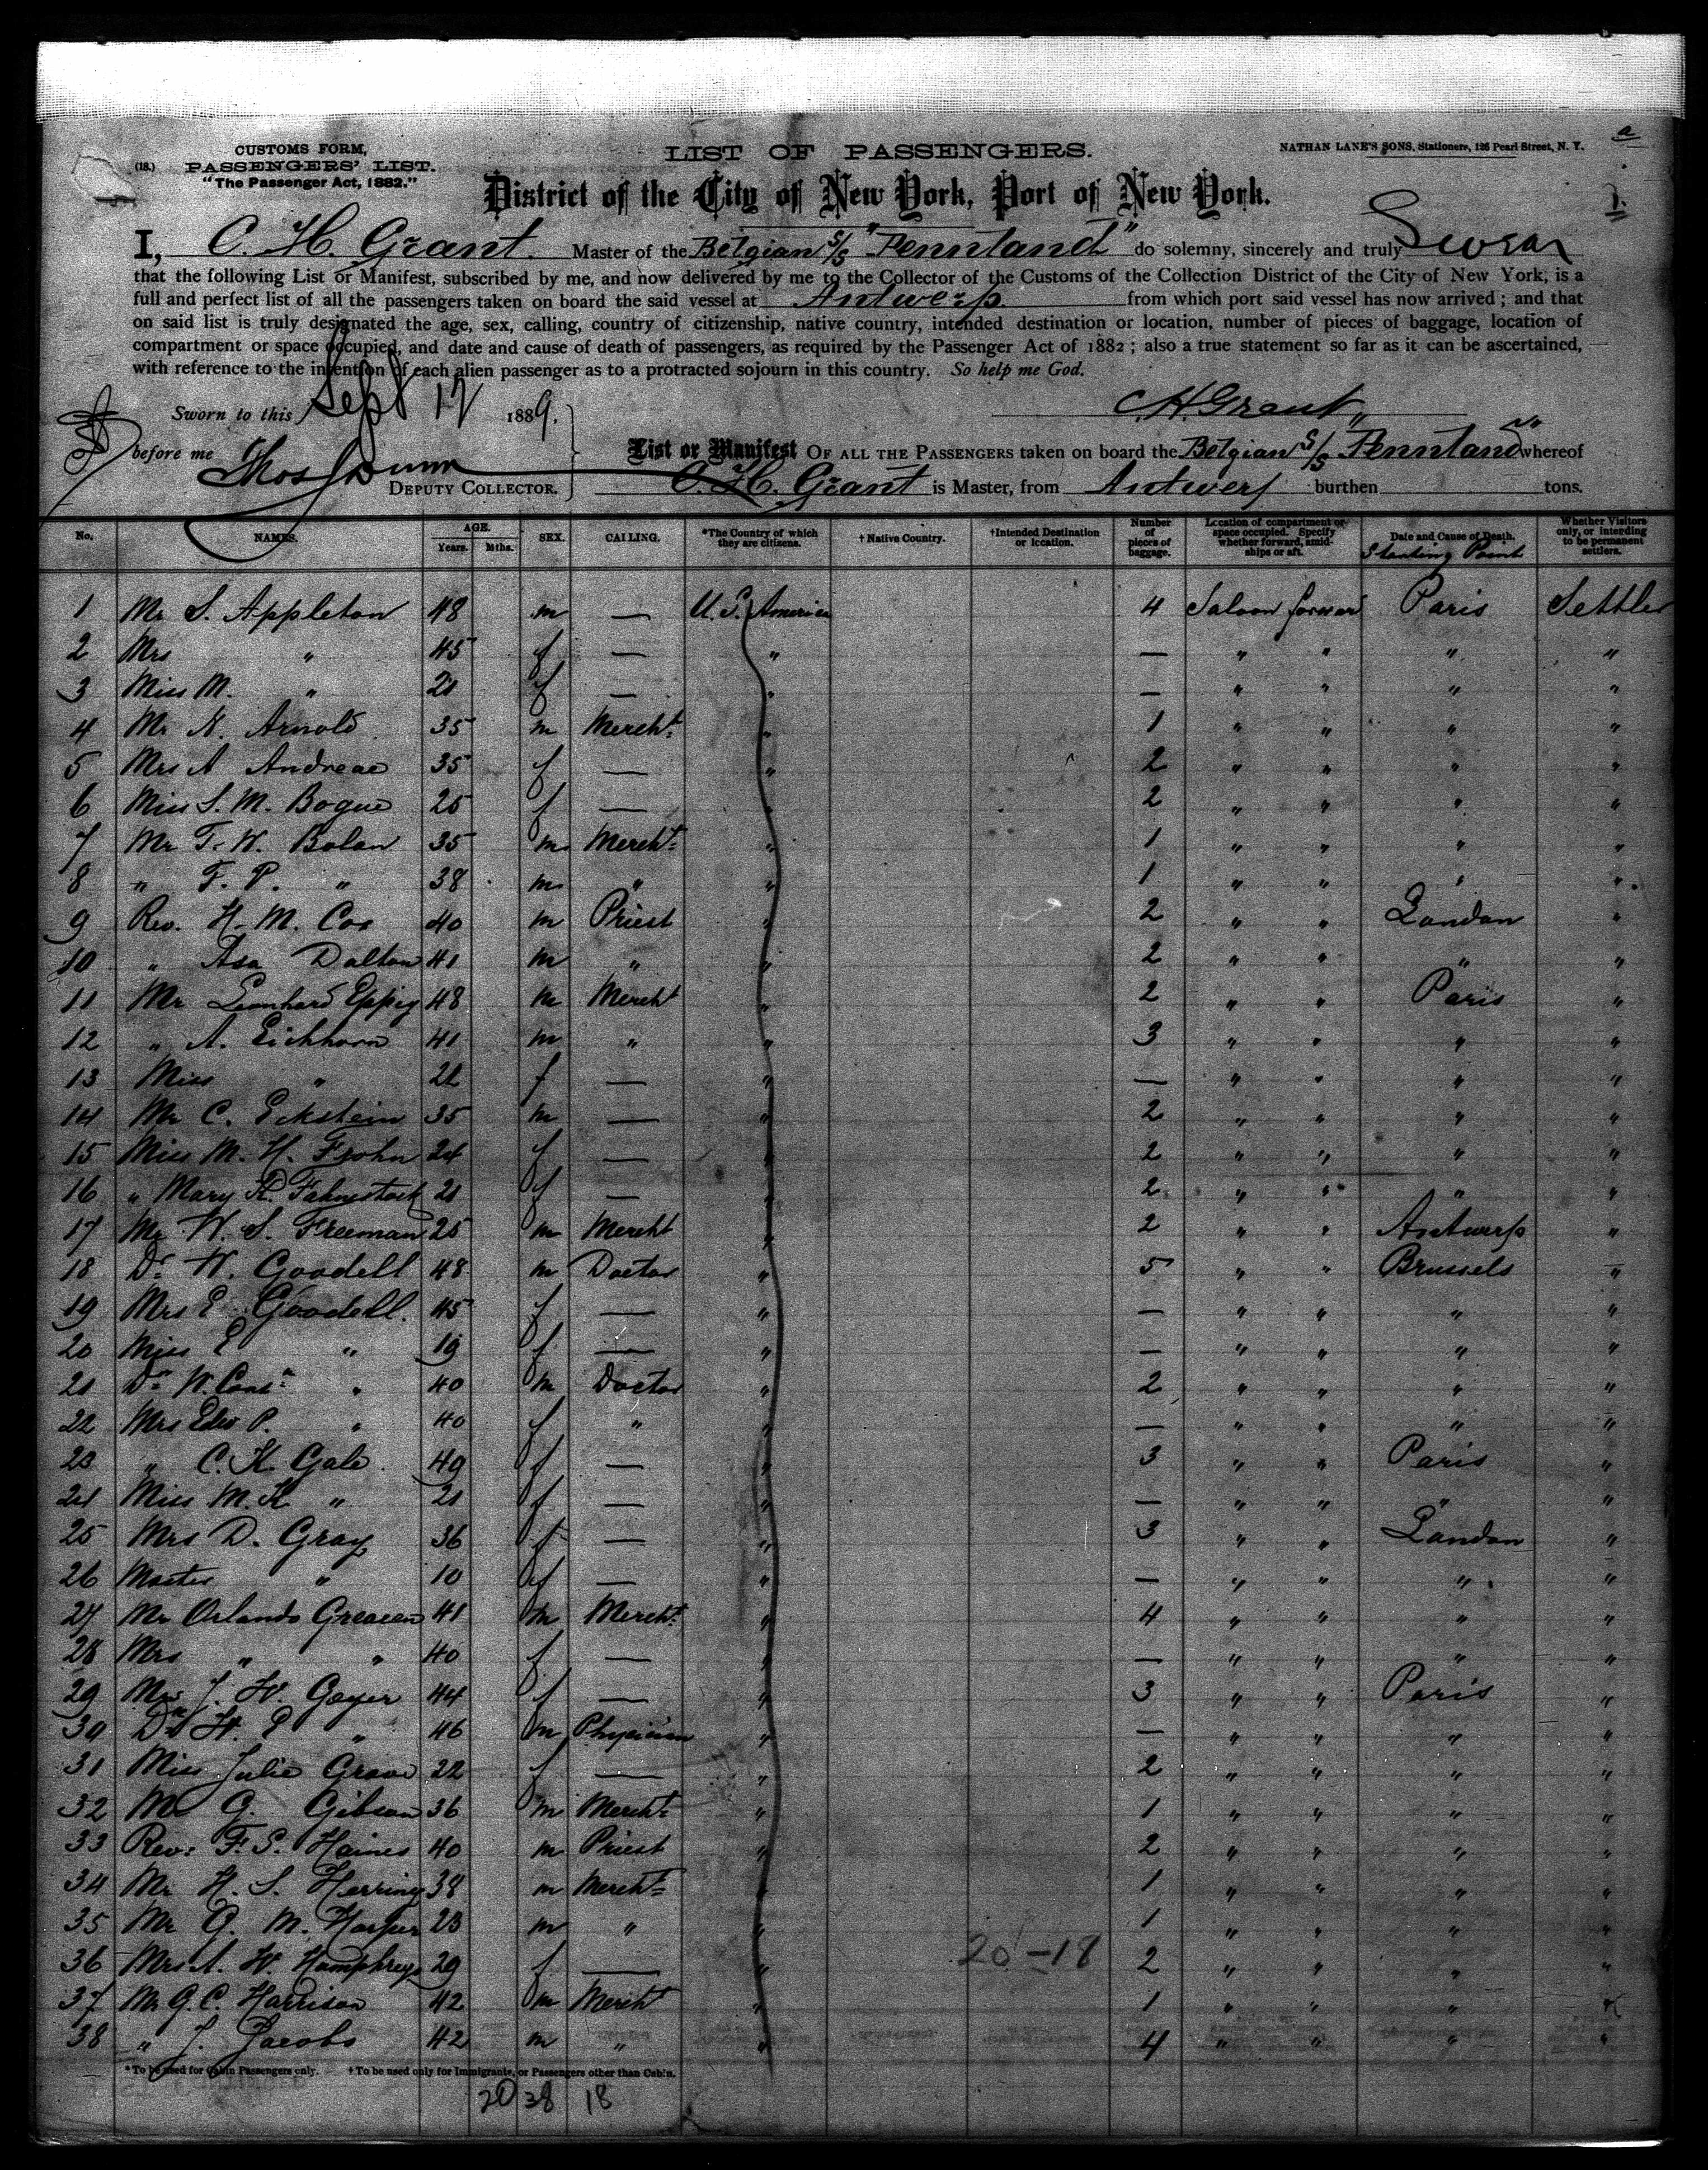 CUSTOMS FORM,
(18.) PASSENGERS' LIST.
"The Passenger Act, 1882."
LIST OF PASSENGERS.
NATHAN LANE'S SONS, Stationers, 126 Pearl Street, N. Y.
District of the City of New York, Port of New York.
I, C. H. Grant. Master of the Belgian S/S "Pennland" do solemny, sincerely and truly Swear
that the following List or Manifest, subscribed by me, and now delivered by me to the Collector of the Customs of the Collection District of the City of New York, is a
full and perfect list of all the passengers taken on board the said vessel at Antwerp. from which port said vessel has now arrived ; and that
on said list is truly designated the age, sex, calling, country of citizenship, native country, intended destination or location, number of pieces of baggage, location of
compartment or space occupied, and date and cause of death of passengers, as required by the Passenger Act of 1882 ; also a true statement so far as it can be ascertained,
with reference to the intention of each alien passenger as to a protracted sojourn in this country. So help me God.
Sworn to this Sept 17 1889.
C.H. Grant
before me Thos Dunn
DEPUTY COLLECTOR.
List or Manifest OF ALL THE PASSENGERS taken on board the Belgian S/S Pennland whereof
C. H. Grant is Master, from Antwerp burthen tons.
No. NAMES. AGE. Years. Mths. SEX. CALLING. *The Country of which they are citizens. † Native Country. †Intended Destination or location. Number of pieces of baggage. Location of compartment or space occupied. Specify whether forward, amidships or aft. Date and Cause of Death. Starting Point Whether Visitors only, or intending to be permanent settlers.
1 Mr S. Appleton 48 m — U.S. America 4 Saloon forward Paris Settler
2 Mrs " 45 f — " — " " " "
3 Miss M. " 21 f — " — " " " "
4 Mr N. Arnold 35 m Mercht. " 1 " " " "
5 Mrs A Andreae 35 f — " 2 " " " "
6 Miss S. M. Bogue 25 f — " 2 " " " "
7 Mr T. W. Bolan 35 m Mercht. " 1 " " " "
8 " F. P. " 38 m " " 1 " " " "
9 Rev. H. M. Cox 40 m Priest " 2 " " London "
10 " Asa Dalton 41 m " " 2 " " " "
11 Mr Leonhard Eppig 48 m Mercht " 2 " " Paris "
12 " A. Eichhorn 41 m " " 3 " " " "
13 Miss " 22 f — " — " " " "
14 Mr C. Eckstein 35 m — " 2 " " " "
15 Miss M. H. Frohn 24 f — " 2 " " " "
16 " Mary K. Fahnestock 21 f — " 2 " " " "
17 Mr W. S. Freeman 25 m Mercht " 2 " " Antwerp "
18 Dr W. Goodell 48 m Doctor " 5 " " Brussels "
19 Mrs E. Goodell. 45 f — " — " " " "
20 Miss E " 19 f — " — " " " "
21 Dr W. " 40 m Doctor " 2 " " " "
22 Mrs Edw P. " 40 f " " — " " " "
23 " C. K. Gale 49 f — " 3 " " Paris "
24 Miss M. K " 21 f — " — " " " "
25 Mrs D. Gray 36 f — " 3 " " London "
26 Master " 10 f — " — " " " "
27 Mr Orlando Greacen 41 m Mercht. " 4 " " " "
28 Mrs " " 40 f — " — " " " "
29 Mrs J. W. Goyer 44 f — " 3 " " Paris "
30 Dr W. E " 46 m Physician " — " " " "
31 Miss Julie Grove 22 f — " 2 " " " "
32 Mr G. Gibson 36 m Mercht. " 1 " " " "
33 Rev. F. S. Haines 40 m Priest " 2 " " " "
34 Mr H. S. Herring 38 m Mercht. " 1 " " " "
35 Mr G. M. Harper 23 m " " 1 " " " "
20 – 18
36 Mrs A. W. Humphreys 29 f — " 2 " " " "
37 Mr G. C. Harrison 42 m Mercht " 1 " " " "
38 " J. Jacobs 42 m " " 4 " " " "
*To be used for Cabin Passengers only. †To be used only for Immigrants, or Passengers other than Cabin.
20 38 18